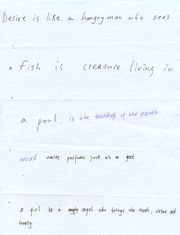 Desire is like a hungry man who sees
a fish is creature living in
a pool, is the teardrop of the earth
wood emits perfume just as a
a girl is a angel who brings the truth, virtue and
beauty.